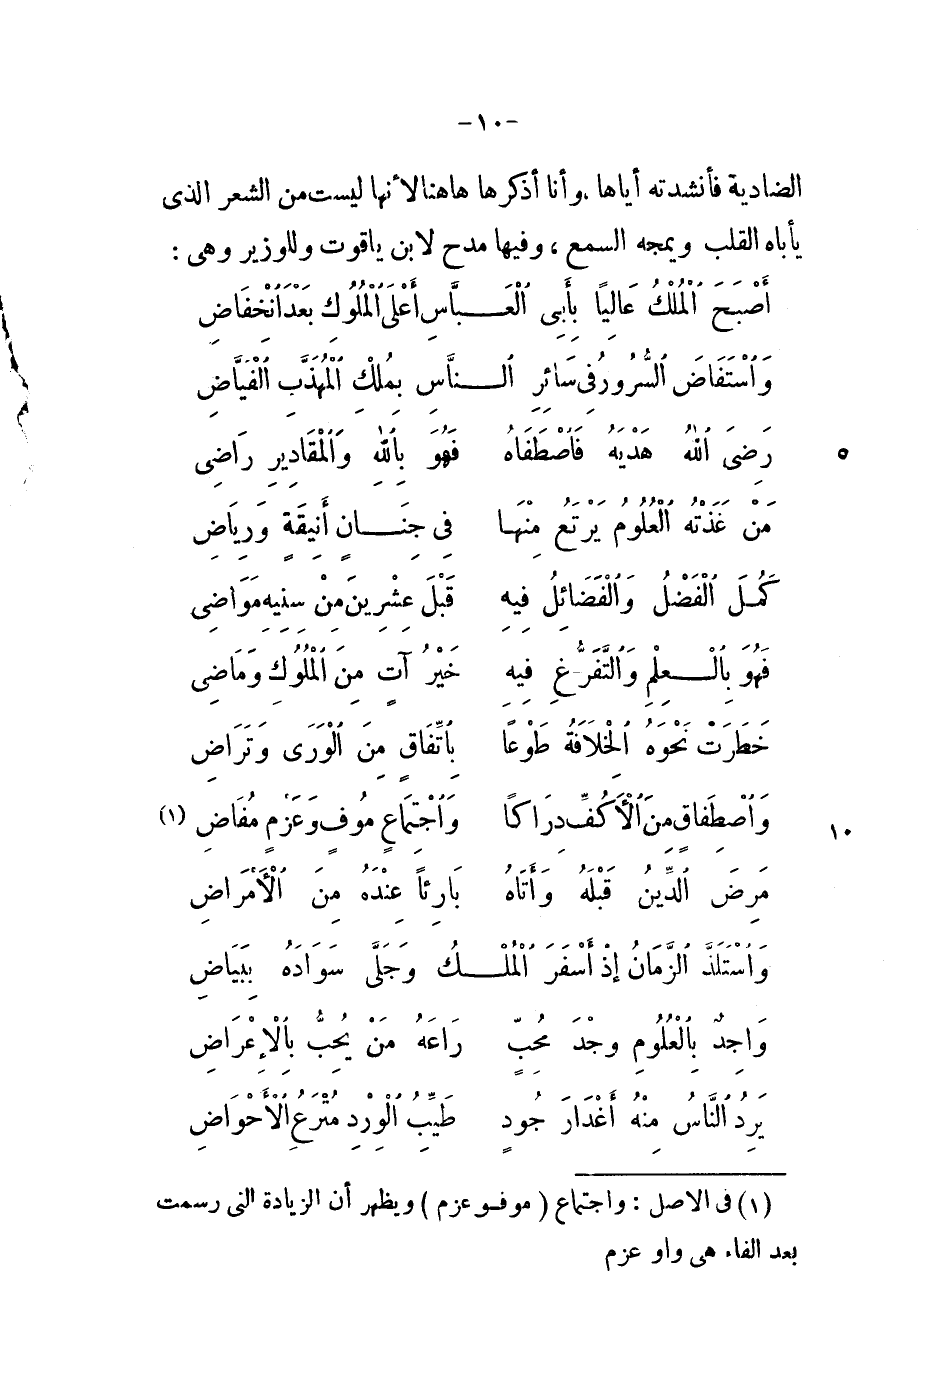 -١٠-
الضادية فأنشدته أياها ،وأنا أذكرها هاهنالأنها ليست من الشعر الذى
يأباه القلب ويمجه السمع ، وفيها مدح لابن ياقوت وللوزير وهى :
أَصْبَحَ ٱلْمُلْكُ عَالِيًا بِأَبِى ٱلْعَبَّاسِ أَعْلَى ٱلْمُلُوكِ بَعْدَ ٱنْخِفَاضِ
وَٱسْتَفَاضَ ٱلسُّرُورُ فِى سَائِرِ ٱلنَّاسِ بِمُلْكِ ٱلْمُهَذَّبِ ٱلْفَيَّاضِ
رَضِىَ ٱللهُ هَدْيَهُ فَٱصْطَفَاهُ فَهُوَ بِٱللهِ وَٱلْمَقَادِيرِ رَاضِى ٥
مَنْ غَذَتْهُ ٱلْعُلُومُ يَرْتَعُ مِنْهَا فِى جِنَانٍ أَنِيقَةٍ وَرِيَاضِ
كَمُلَ ٱلْفَضْلُ وَٱلْفَضَائِلُ فِيهِ قَبْلَ عِشْرِينَ مِنْ سِنِيهِ مَوَاضِى
فَهُوَ بِٱلْعِلْمِ وَٱلتَّفَرُّغِ فِيهِ خَيْرُ آتٍ مِنَ ٱلْمُلُوكِ وَمَاضِى
خَطَرَتْ نَحْوَهُ ٱلْخِلَافَةُ طَوْعًا بِٱتِّفَاقٍ مِنَ ٱلْوَرَى وَتَرَاضِ
وَٱصْطِفَاقٍ مِنَ ٱلْأَكُفِّ دِرَاكًا وَٱجْتِمَاعِ مُوفٍ وَعَزْمٍ مُفَاضِ (١) ١٠
مَرِضَ ٱلدِّينُ قَبْلَهُ وَأَتَاهُ بَارِئاً عِنْدَهُ مِنَ ٱلْأَمْرَاضِ
وَٱسْتَلَذَّ ٱلزَّمَانُ إِذْ أَسْفَرَ ٱلْمُلْكُ وَجَلَّى سَوَادَهُ بِبَيَاضِ
وَاجِدٌ بِٱلْعُلُومِ وَجْدَ مُحِبٍّ رَاعَهُ مَنْ يُحِبُّ بِٱلْإِعْرَاضِ
يَرِدُ ٱلنَّاسُ مِنْهُ أَغْدَارَ جُودٍ طَيِّبُ ٱلْوِرْدِ مُتْرَعُ ٱلْأَحْوَاضِ
(١) فى الاصل : واجتماع ( موفــو عزم ) ويظهر أن الزيادة التى رسمت
بعد الفاء هى واو عزم